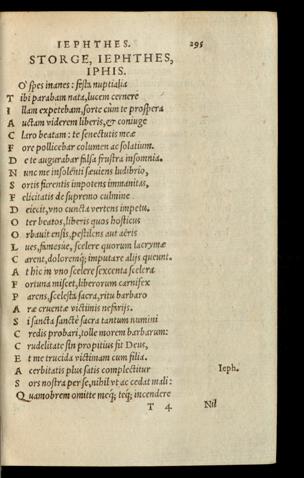 IEPHTHES. 295
STORGE, IEPHTHES,
IPHIS.
O' spes inanes: festa nuptialia
T ibi parabam nata, lucem cernere
I llam expetebam, sorte cùm te prospera
A uctam viderem liberis, & coniuge
C laro beatam: te senectutis meæ
F ore pollicebar columen ac solatium.
D e te augurabar falsa frustra insomnia.
N unc me insolenti sæuiens ludibrio,
S ortis furentis impotens immanitas,
F elicitatis de supremo culmine
D eiecit, vno cuncta vertens impetu.
O ter beatos, liberis quos hosticus
O rbauit ensis, pestilens aut aëris
L ues, funesue, scelere quorum lacrymæ
C arent, doloremq; imputare alijs queunt.
A t hic in vno scelere sexcenta scelera
F ortuna miscet, liberorum carnifex
P arens, scelesta sacra, ritu barbaro
A ræ cruentæ victimis nefarijs.
S i sancta sanctè sacra tantum numini
C redis probari, tolle morem barbarum:
C rudelitate sin propitius fit Deus,
E t me trucida victimam cum filia.
A cerbitatis plus satis complectitur Ieph.
S ors nostra per se, nihil vt ac cedat mali:
Q uamobrem omitte meq; teq; incendere
T 4 Nil